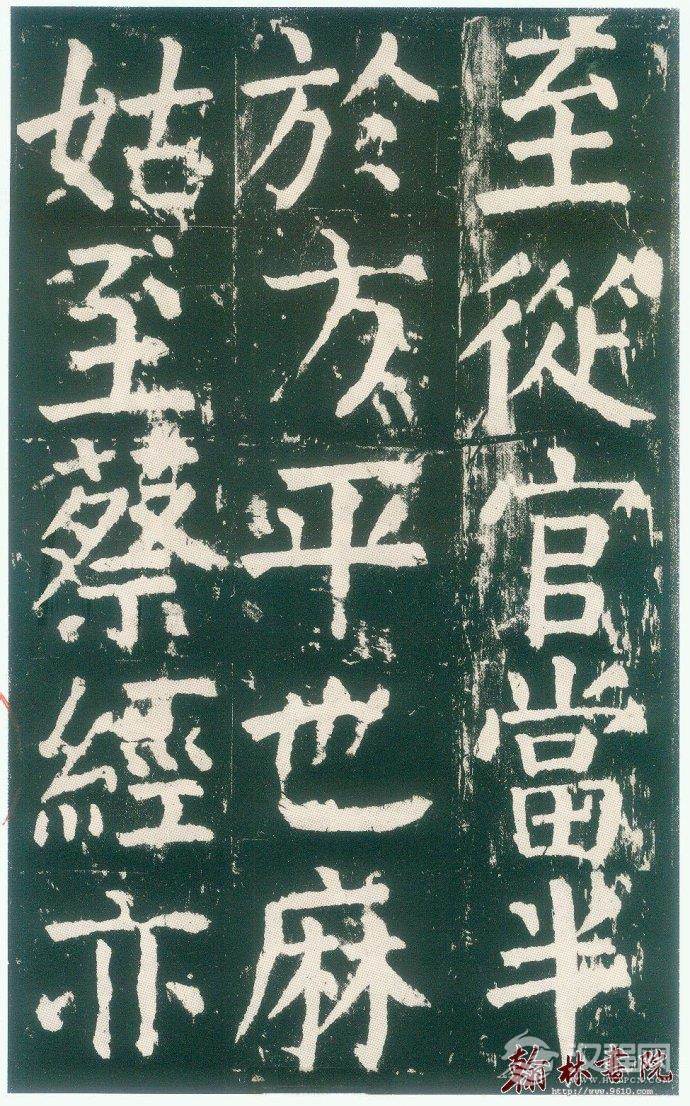 至從官當半
於方平也麻
姑至蔡經亦
翰林書院
http://www.9610.com